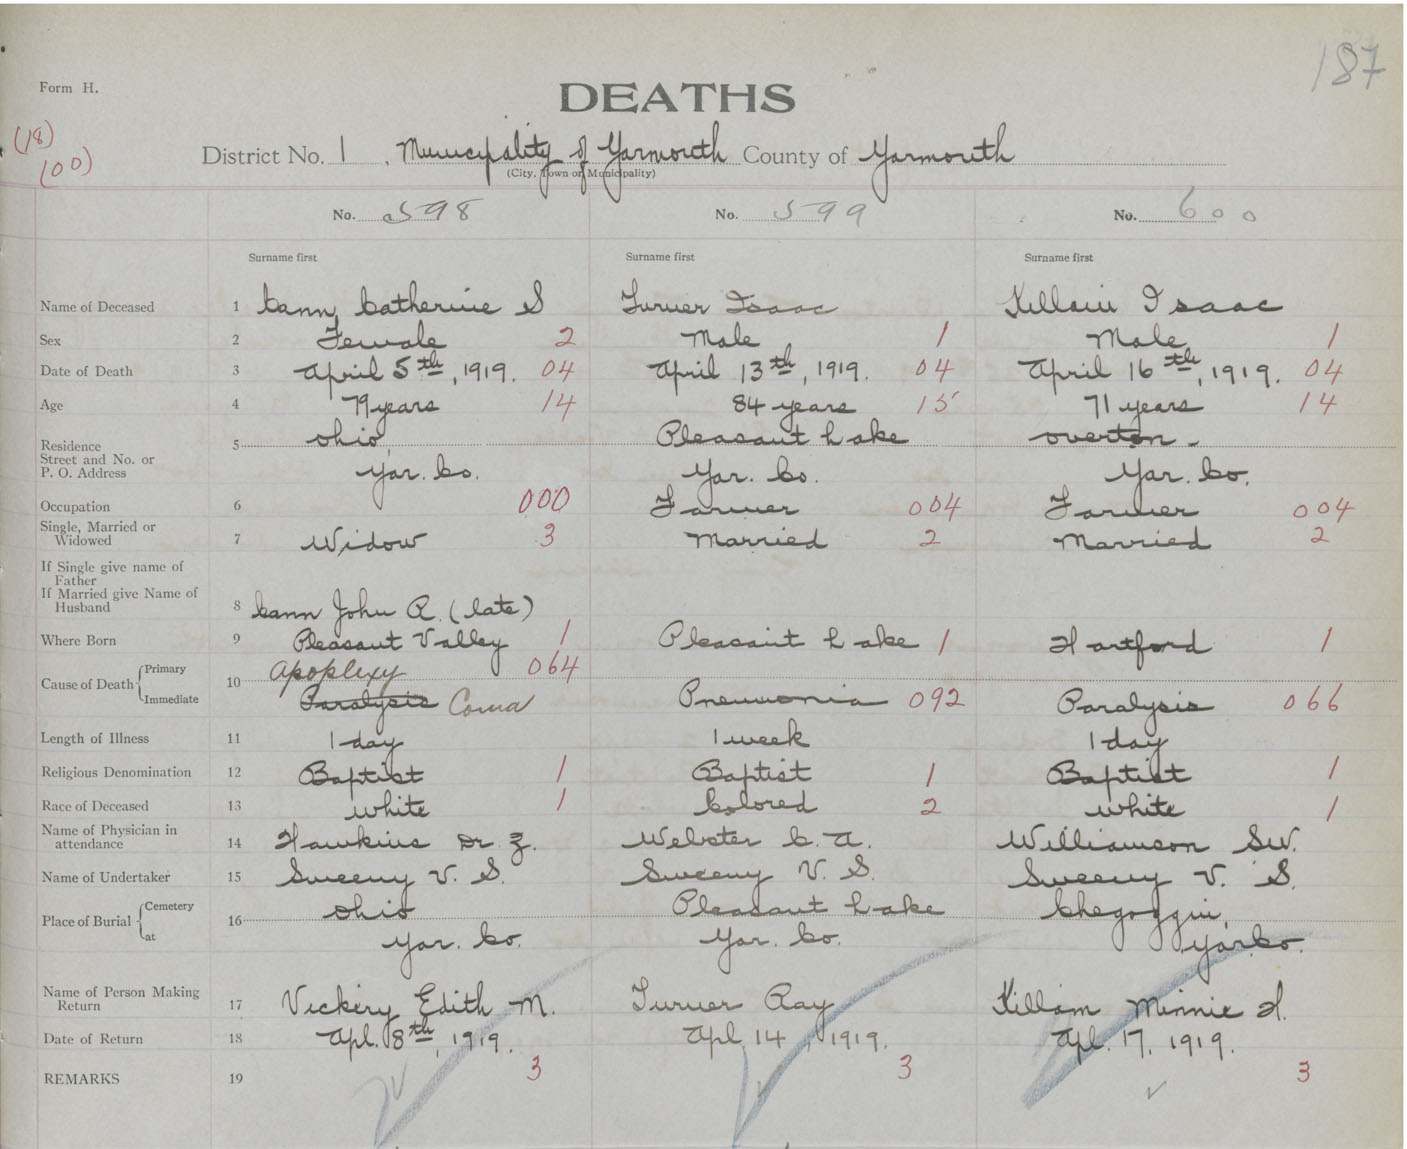 187
Form H.
DEATHS
(18)
(00)
District No. 1. Municipality of Yarmouth County of Yarmouth
(City, Town or Municipality)
No. 598 No. 599 No. 600
Surname first Surname first Surname first
Name of Deceased 1 Cann, Catherine S Turner Isaac Killam Isaac
Sex 2 Female 2 Male 1 Male 1
Date of Death 3 April 5th, 1919. 04 April 13th, 1919. 04 April 16th, 1919. 04
Age 4 79 years 14 84 years 15 71 years 14
Residence 5 Ohio Pleasant Lake Overton.
Street and No. or
P. O. Address Yar. Co. Yar. Co. Yar. Co.
Occupation 6 000 Farmer 004 Farmer 004
Single, Married or
Widowed 7 Widow 3 Married 2 Married 2
If Single give name of
Father
If Married give Name of
Husband 8 Cann John R. (late)
Where Born 9 Pleasant Valley 1 Pleasant Lake 1 Hartford 1
Cause of Death Primary Apoplexy 064
10
Immediate Paralysis Coma Pneumonia 092 Paralysis 066
Length of Illness 11 1 day 1 week 1 day
Religious Denomination 12 Baptist 1 Baptist 1 Baptist 1
Race of Deceased 13 White 1 Colored 2 White 1
Name of Physician in
attendance 14 Hawkins Dr. Z. Webster C. A. Williamson S.W.
Name of Undertaker 15 Sweeny V. S. Sweeny V. S. Sweeny V. S.
Place of Burial Cemetery 16 Ohio Pleasant Lake Chegoggin,
at Yar. Co. Yar. Co. Yar. Co.
Name of Person Making
Return 17 Vickery Edith M. Turner Ray Killam Minnie H.
Date of Return 18 Apl. 8th, 1919. Apl. 14, 1919. Apl. 17, 1919.
REMARKS 19 3 3 3